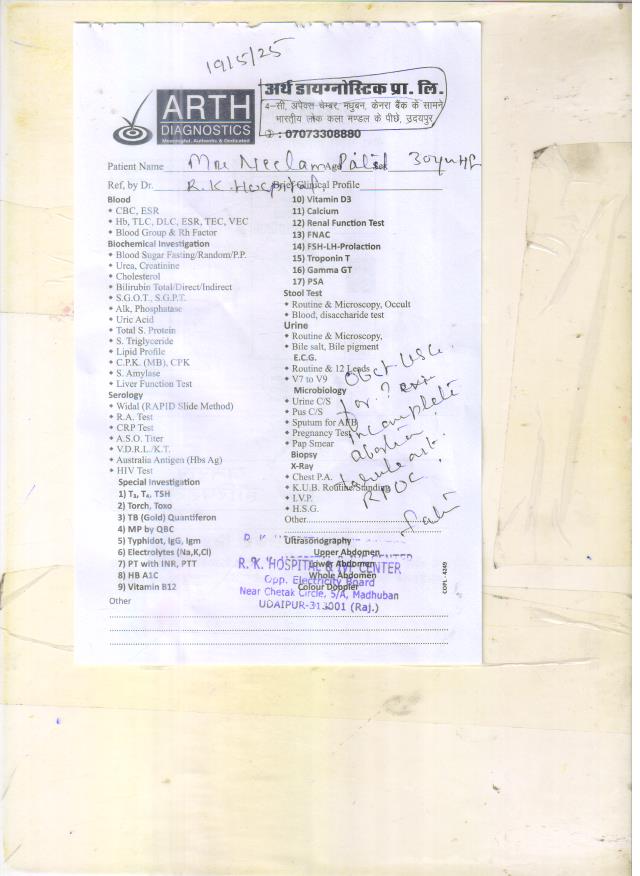 19/5/25
ARTH
DIAGNOSTICS
Meaningful, Authentic & Dedicated
अर्थ डायग्नोस्टिक प्रा. लि.
4-सी, अपेक्स चेम्बर, मधुबन, केनरा बैंक के सामने
भारतीय लोक कला मण्डल के पीछे, उदयपुर
: 07073308880
Patient Name Mrs Neelam Age Sex 30yr
Ref, by Dr. R.K. Hospital Brief Clinical Profile
Blood
CBC, ESR
Hb, TLC, DLC, ESR, TEC, VEC
Blood Group & Rh Factor
Biochemical Investigation
Blood Sugar Fasting/Random/P.P.
Urea, Creatinine
Cholesterol
Bilirubin Total/Direct/Indirect
S.G.O.T., S.G.P.T.
Alk, Phosphatase
Uric Acid
Total S. Protein
S. Triglyceride
Lipid Profile
C.P.K. (MB), CPK
S. Amylase
Liver Function Test
Serology
Widal (RAPID Slide Method)
R.A. Test
CRP Test
A.S.O. Titer
V.D.R.L./K.T.
Australia Antigen (Hbs Ag)
HIV Test
Special Investigation
1) T₃, T₄, TSH
2) Torch, Toxo
3) TB (Gold) Quantiferon
4) MP by QBC
5) Typhidot, IgG, Igm
6) Electrolytes (Na,K,Cl)
7) PT with INR, PTT
8) HB A1C
9) Vitamin B12
Other
10) Vitamin D3
11) Calcium
12) Renal Function Test
13) FNAC
14) FSH-LH-Prolaction
15) Troponin T
16) Gamma GT
17) PSA
Stool Test
Routine & Microscopy, Occult
Blood, disaccharide test
Urine
Routine & Microscopy,
Bile salt, Bile pigment
E.C.G.
Routine & 12 Leads
V7 to V9
Microbiology
Urine C/S
Pus C/S
Sputum for AFB
Pregnancy Test
Pap Smear
Biopsy
X-Ray
Chest P.A.
K.U.B. Routine/Standing
I.V.P.
H.S.G.
Other
Ultrasonography
Upper Abdomen
Lower Abdomen
Whole Abdomen
Colour Doppler
USG
for ?
incomplete
abortion
RPOC
R. K. HOSPITAL & IVF CENTER
Opp. Electricity Board
Near Chetak Circle, 5/A, Madhuban
UDAIPUR-313001 (Raj.)
COPL - 4249